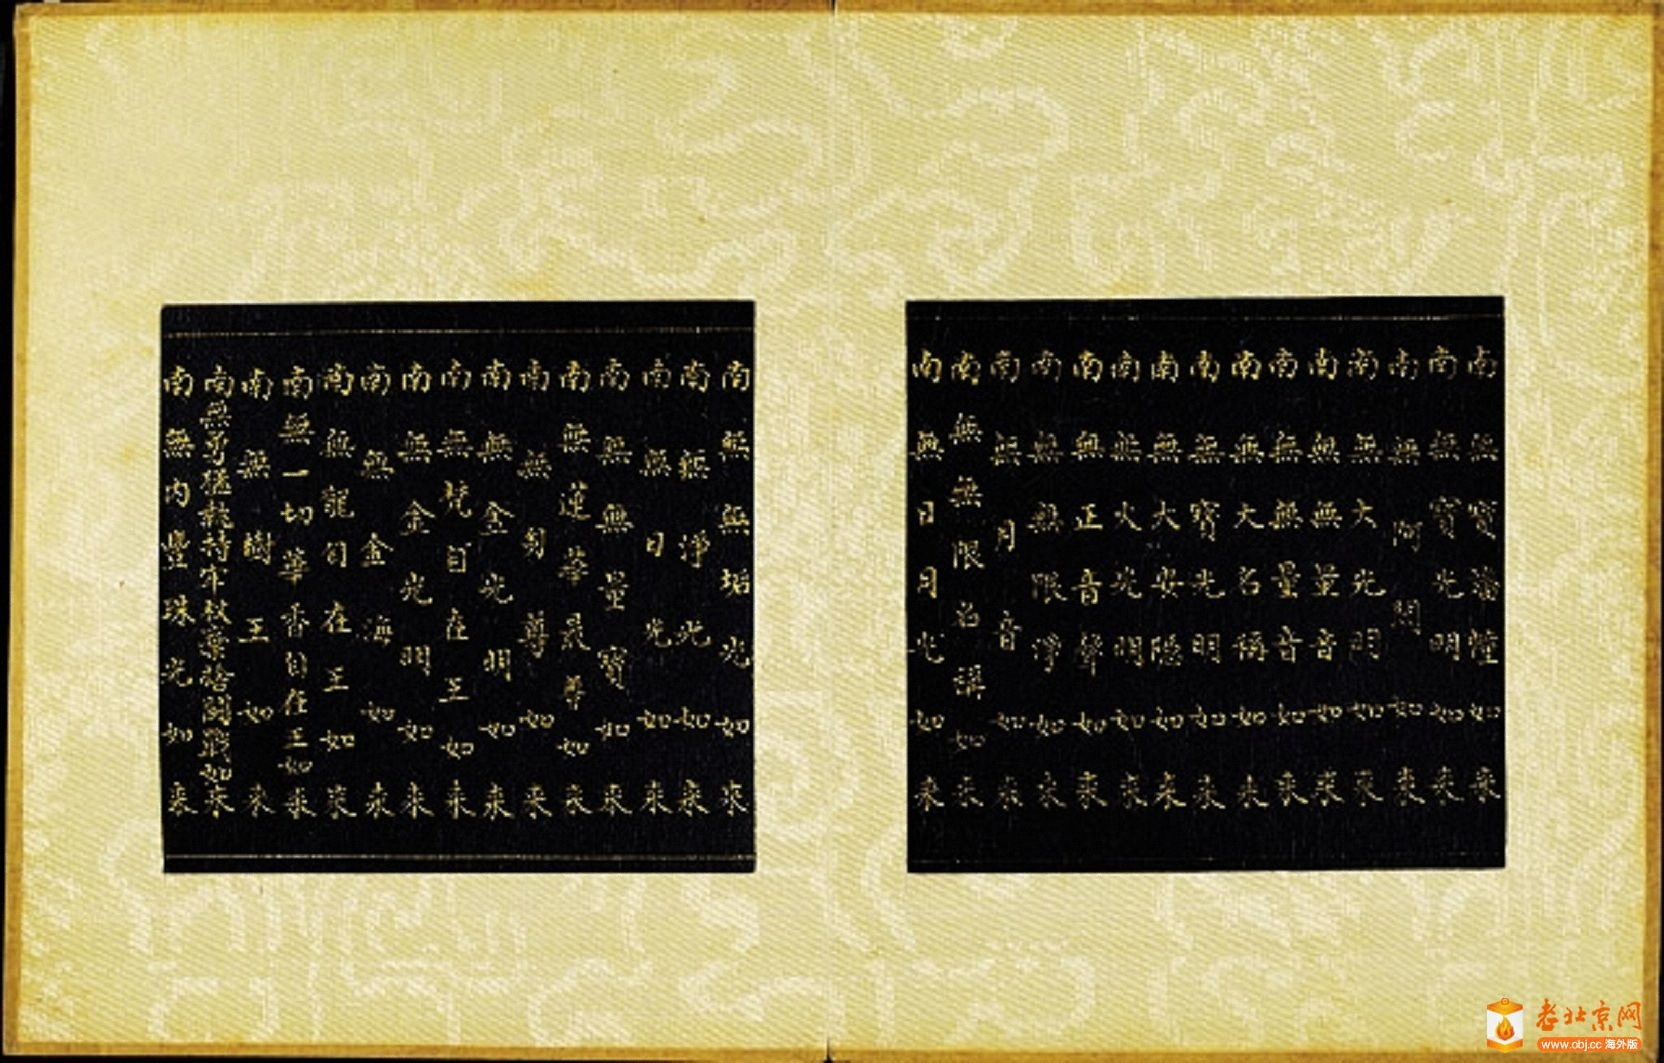 南無寶幡幢如來
南無寶光明如來
南無阿閦如來
南無大光明如來
南無無量音如來
南無無量音如來
南無大名稱如來
南無寶光明如來
南無大安隱如來
南無火光明如來
南無正音聲如來
南無無限淨如來
南無月音如來
南無無限名稱如來
南無日月光如來
南無無垢光如來
南無淨光如來
南無日光如來
南無無量寶如來
南無蓮華最尊如來
南無身尊如來
南無金光明如來
南無梵自在王如來
南無金光明如來
南無金海如來
南無龍自在王如來
南無一切華香自在王如來
南無樹王如來
南無勇猛執持牢杖棄捨鬪戰如來
南無內豐珠光如來
老北京网
www.obj.cc 海外版